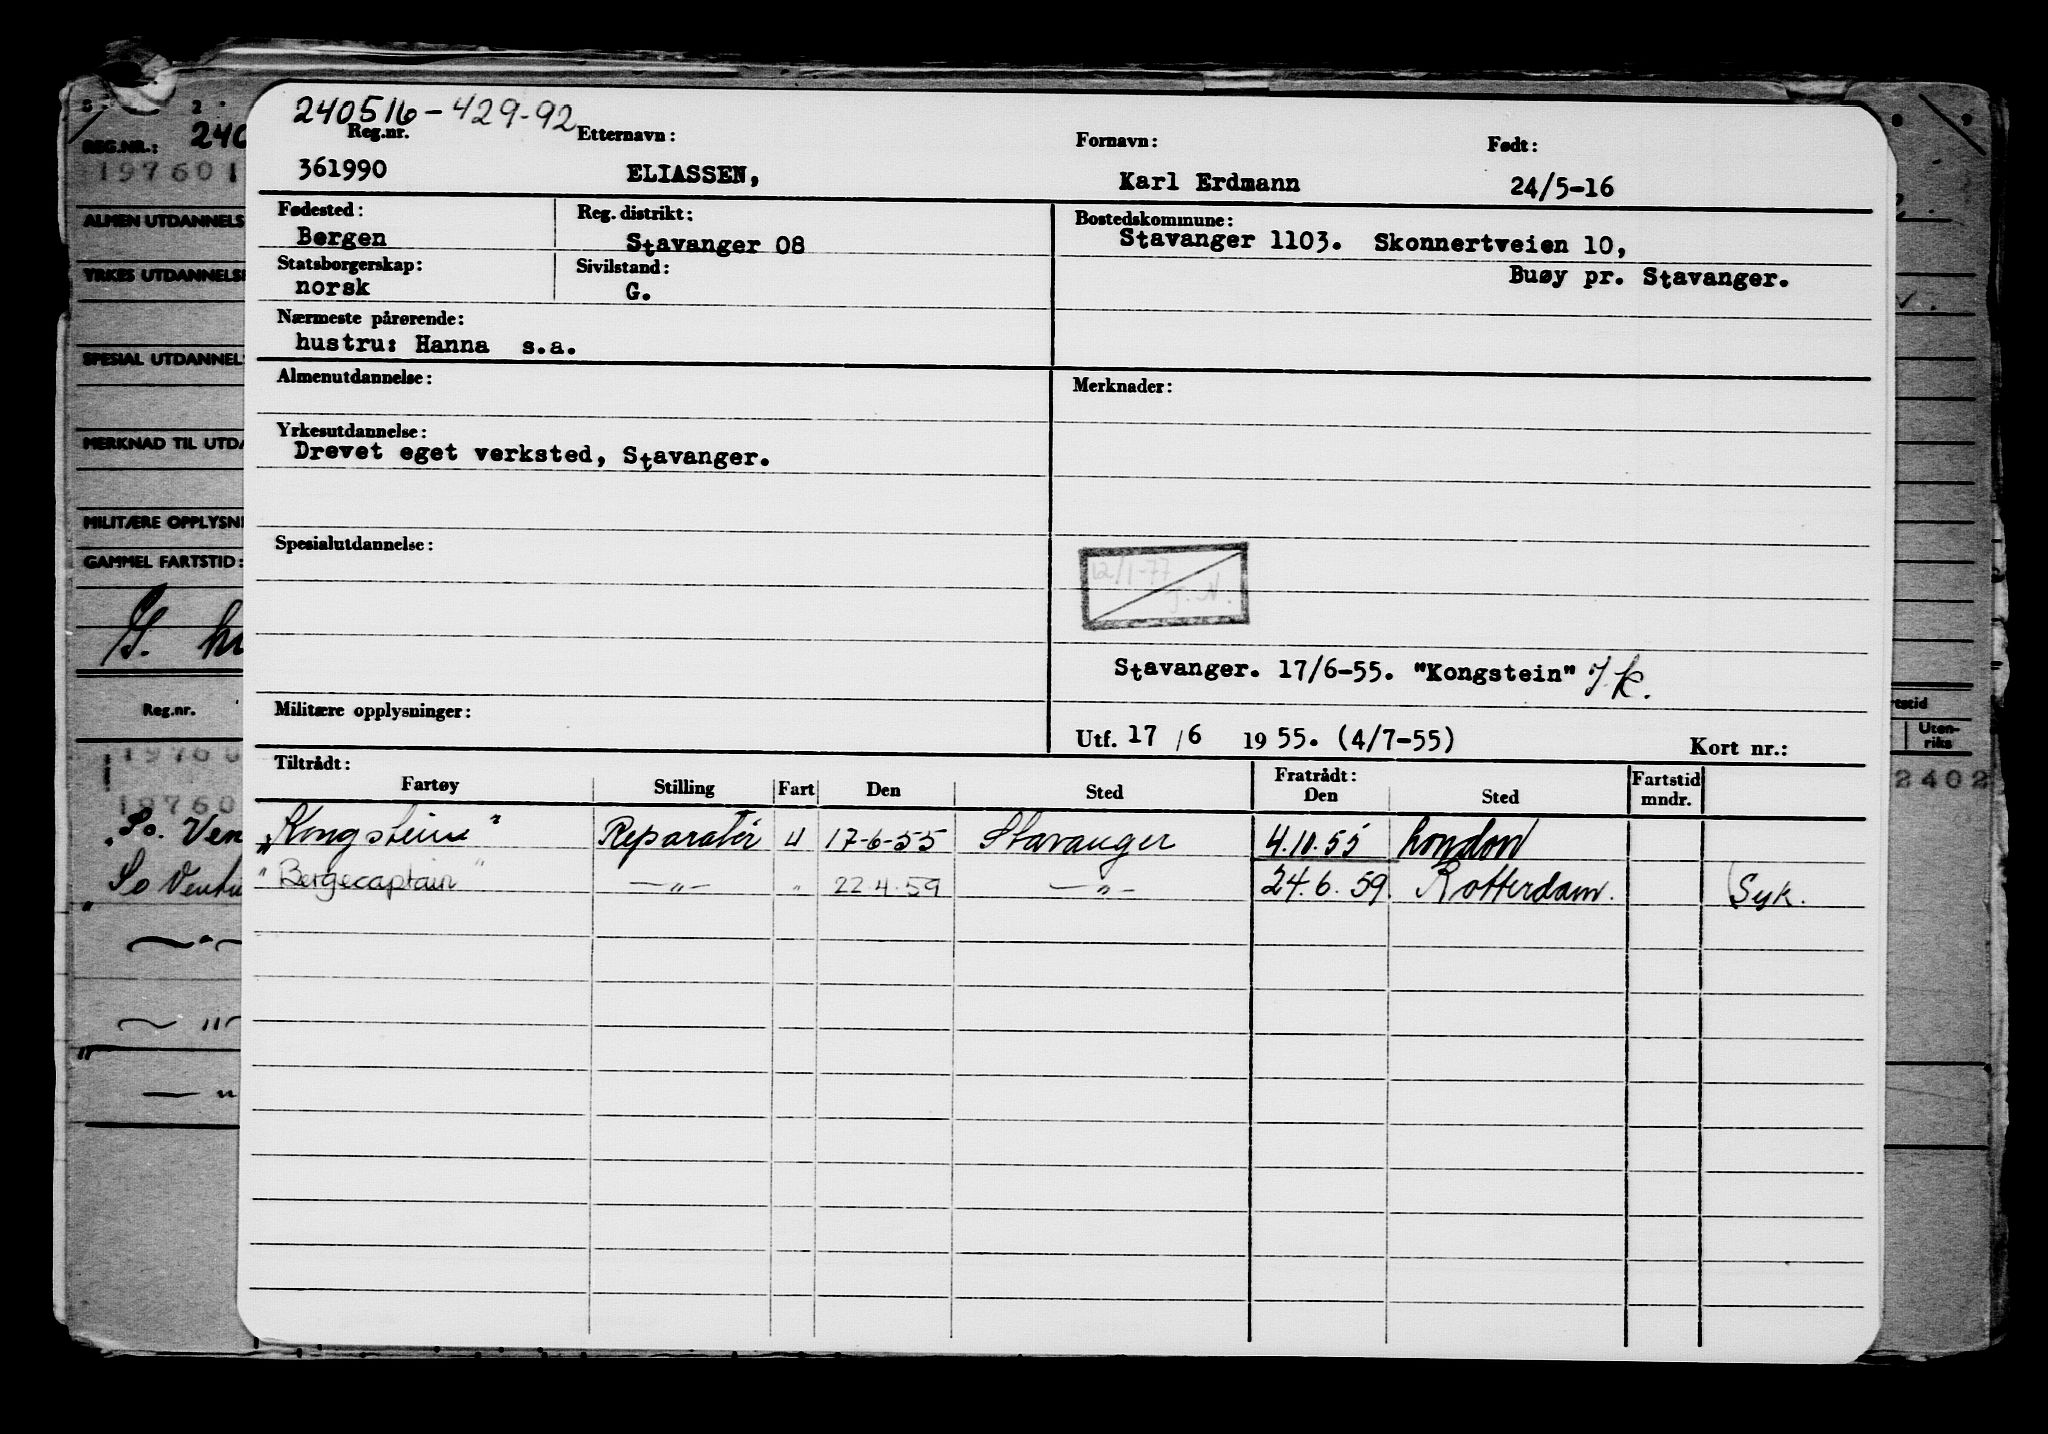 240516-429-92
Reg.nr. Etternavn: Fornavn: Født:
361990 ELIASSEN, Karl Erdmann 24/5-16
Fødested: Reg. distrikt: Bostedskommune:
Bergen Stavanger 08 Stavanger 1103. Skonnertveien 10,
Statsborgerskap: Sivilstand:
norsk G. Buøy pr. Stavanger.
Nærmeste pårørende:
hustru: Hanna s.a.
Almenutdannelse: Merknader:
Yrkesutdannelse:
Drevet eget verksted, Stavanger.
Spesialutdannelse:
12/1-77
J. N.
Stavanger. 17/6-55. "Kongstein" J.K.
Militære opplysninger:
Utf. 17/6 1955. (4/7-55) Kort nr.:
Tiltrådt: Fratrådt: Fartstid
Fartøy Stilling Fart Den Sted Den Sted mndr.
"Kongstein" Reparatør U 17-6-55 Stavanger 4.10.55 London
"Bergecaptain" —"— " 22.4.59 —"— 24.6.59. Rotterdam. Syk.
3 2 8 9
REG.NR.: 240
197601
ALMEN UTDANNELS
YRKES UTDANNELSE
SPESIAL UTDANNEL
MERKNAD TIL UTDA
MILITÆRE OPPLYSNI
GAMMEL FARTSTID:
G. h
Reg.nr. rtstid
Uten-
riks
19760 2402
19760
So. Ven
So Ventu
—"—
— "
— "